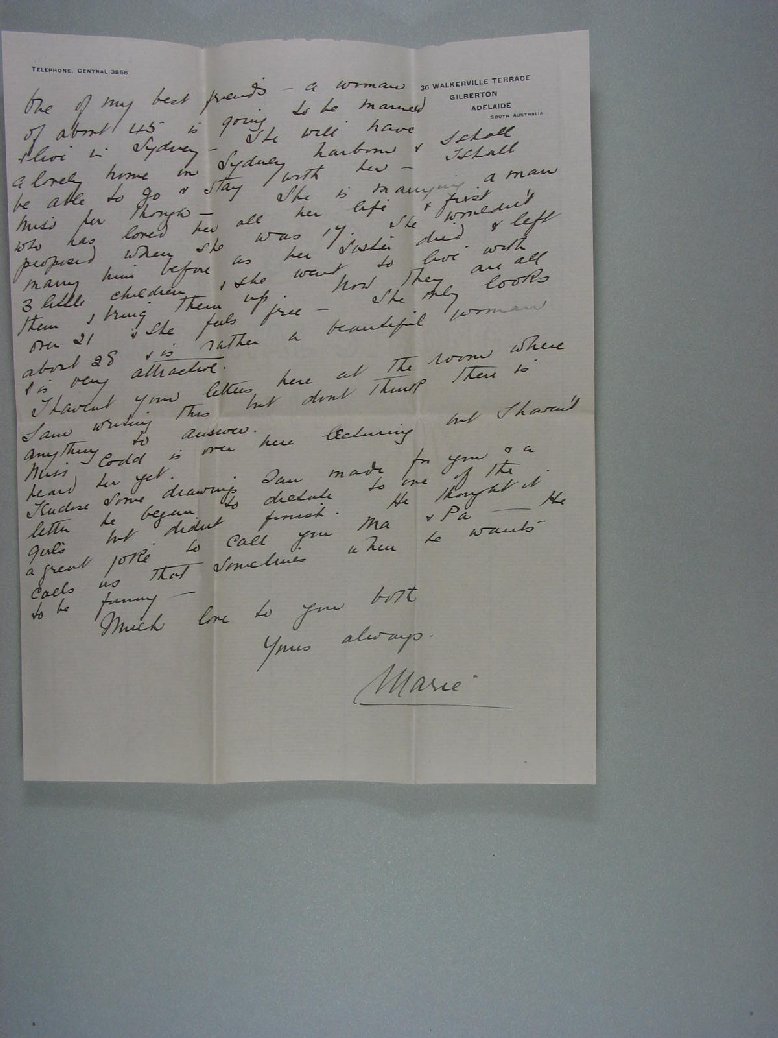 TELEPHONE, CENTRAL 3868
30 WALKERVILLE TERRACE
GILBERTON
ADELAIDE
SOUTH AUSTRALIA
One of my best friends – a woman
of about 45 is going to be married
& live in Sydney – She will have
a lovely home on Sydney harbour & I shall
be able to go & stay with her – I shall
miss her though – She is marrying a man
who has loved her all her life & first
proposed when she was 17. She wouldn't
marry him before as her sister died & left
3 little children & she went to live with
them & bring them up. Now they are all
over 21 & she feels free – She only looks
about 28 & is rather a beautiful woman
& is very attractive.
I havent your letters here at the room where
I am writing this but dont think there is
anything to answer.
Miss Codd is over here lecturing but I haven't
heard her yet.
I enclose some drawing Ian made for you & a
letter he began to dictate to one of the
girls but didnt finish. He thought it
a great joke to call you Ma & Pa — He
calls us that sometimes when he wants
to be funny –
Much love to you both
Yours always.
Marie